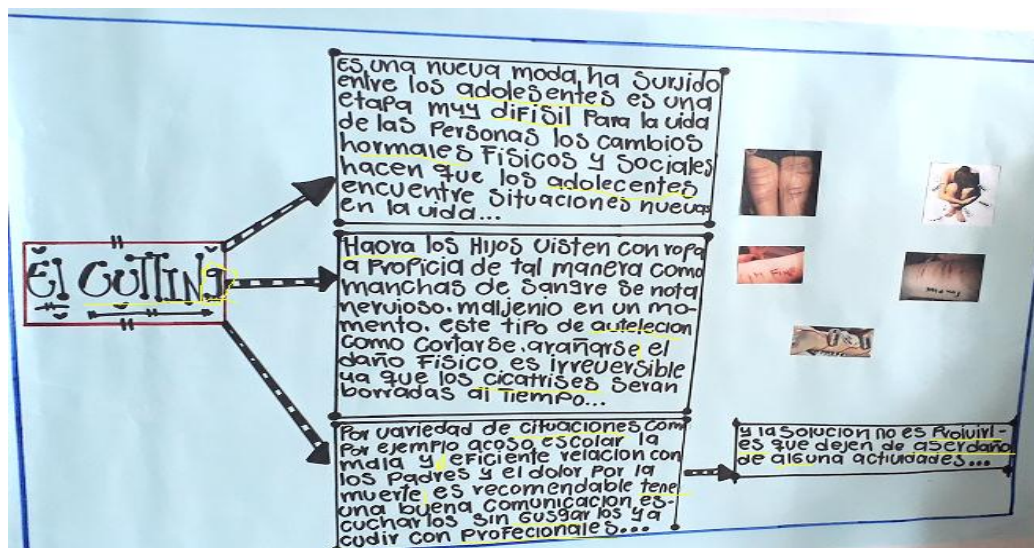 El CUTTINg
Es una nueva moda, ha Surjido
entre los adolesentes es una
etapa muy difisil Para la vida
de las Personas los cambios
hormales Fisicos y Sociales
hacen que los adolecentes
encuentre Situaciones nuevas
en la vida...
Haora los Hijos visten con ropa
a Propicia de tal manera como
manchas de Sangre se nota
nervioso. maljenio en un mo-
mento. este tipo de autelecion
como Cortarse. arañarse el
daño Fisico es irreversible
ya que los cicatrises seran
borradas al Tiempo...
Por variedad de cituaciones com
Por ejemplo acoso escolar la
mala y eficiente relacion con
los Padres y el dolor Por la
muerte es recomendable tene
una buena comunicacion es-
cucharlos sin Gusgarlos y a
cudir con Profecionales...
y la Solucion no es Proiuirl-
es que dejen de aserdaño
de alguna actiudades...